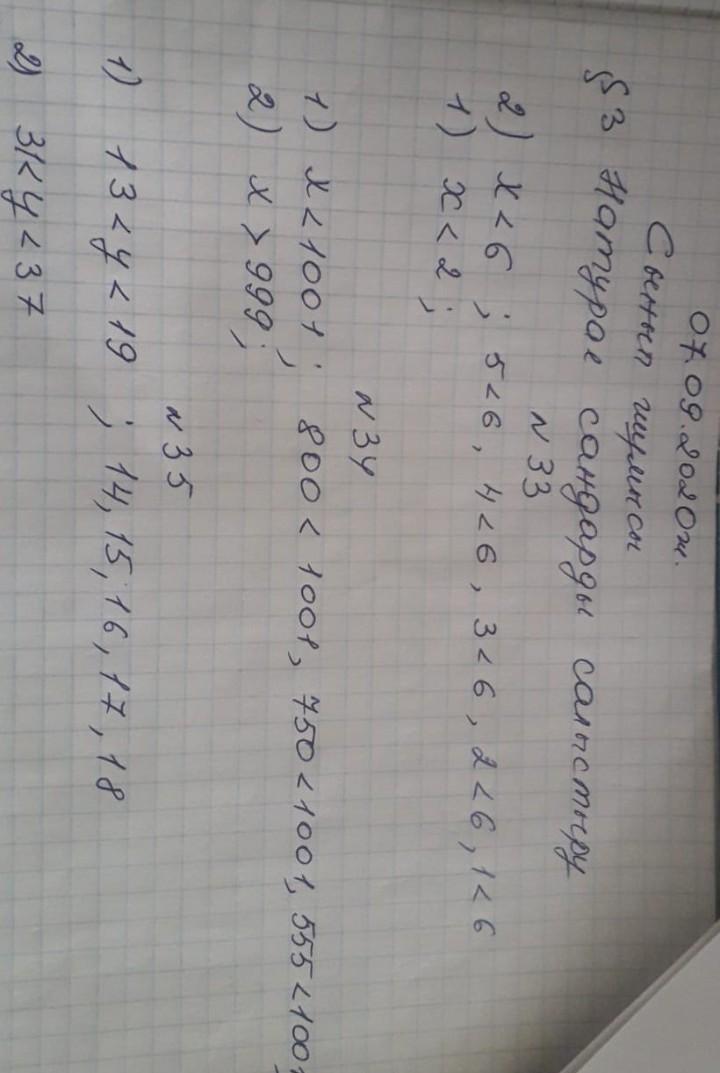 07.09.2020ж.
Сынып жұмысы
§3 Натурал сандарды салыстыру
N33
2) x < 6 ; 5<6, 4<6, 3<6, 2<6, 1<6
1) x < 2 ;
N34
1) x < 1001 ; 800 < 1001, 750 < 1001, 555 < 1001,
2) x > 999 ;
N35
1) 13 < y < 19 ; 14, 15, 16, 17, 18
2) 31 < y < 37